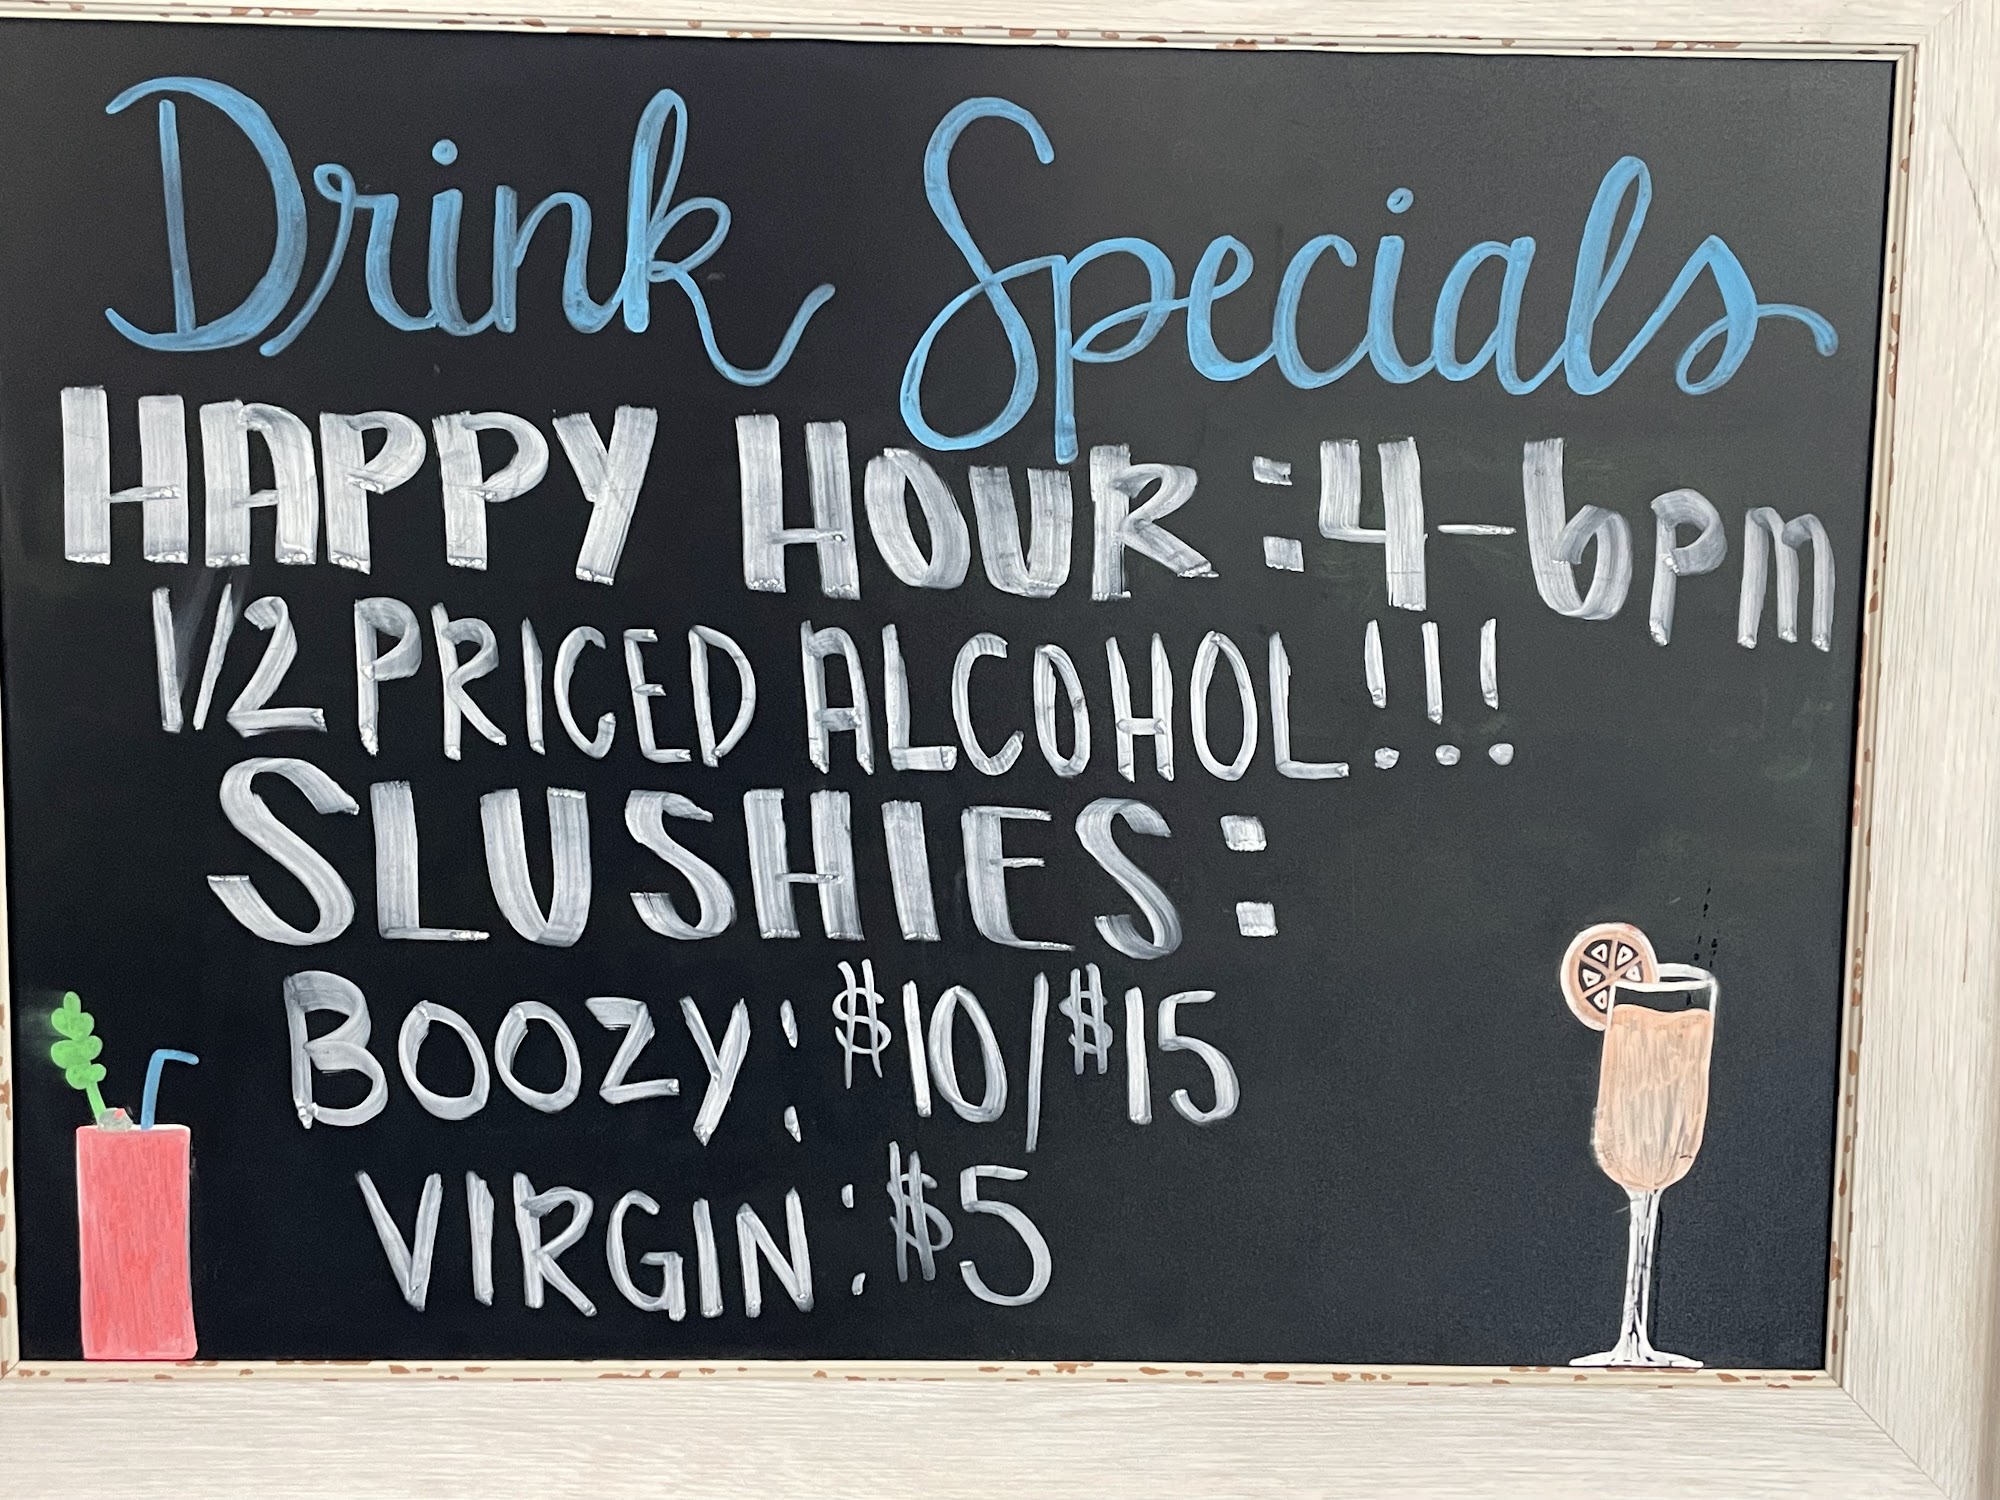 Drink Specials
HAPPY HOUR: 4-6pm
1/2 PRICED ALCOHOL!!!
SLUSHIES:
BOOZY: $10/$15
VIRGIN: $5